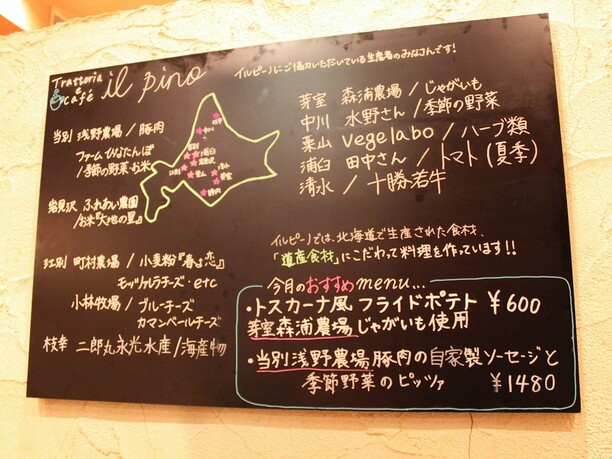 Trattoria
e
café
il pino
イルピーノにご協力いただいている生産者のみなさんです!
当別 浅野農場/豚肉
ファームひなたんぼ
/季節の野菜・お米
岩見沢 ふれあい農園
/お米『大地の星』
江別 町村農場/小麦粉『春よ恋』
モッツァレラチーズ・etc
小林牧場/ブルーチーズ
カマンベールチーズ
枝幸 二郎丸永光水産/海産物
芽室 森浦農場/じゃがいも
中川 水野さん/季節の野菜
栗山 vegelabo/ハーブ類
浦臼 田中さん/トマト(夏季)
清水 / 十勝若牛
イルピーノでは、北海道で生産された食材、
「道産食材」にこだわって料理を作っています!!
今月のおすすめmenu...
・トスカーナ風 フライドポテト ¥600
芽室森浦農場じゃがいも使用
・当別浅野農場豚肉の自家製ソーセージと
季節野菜のピッツァ ¥1480